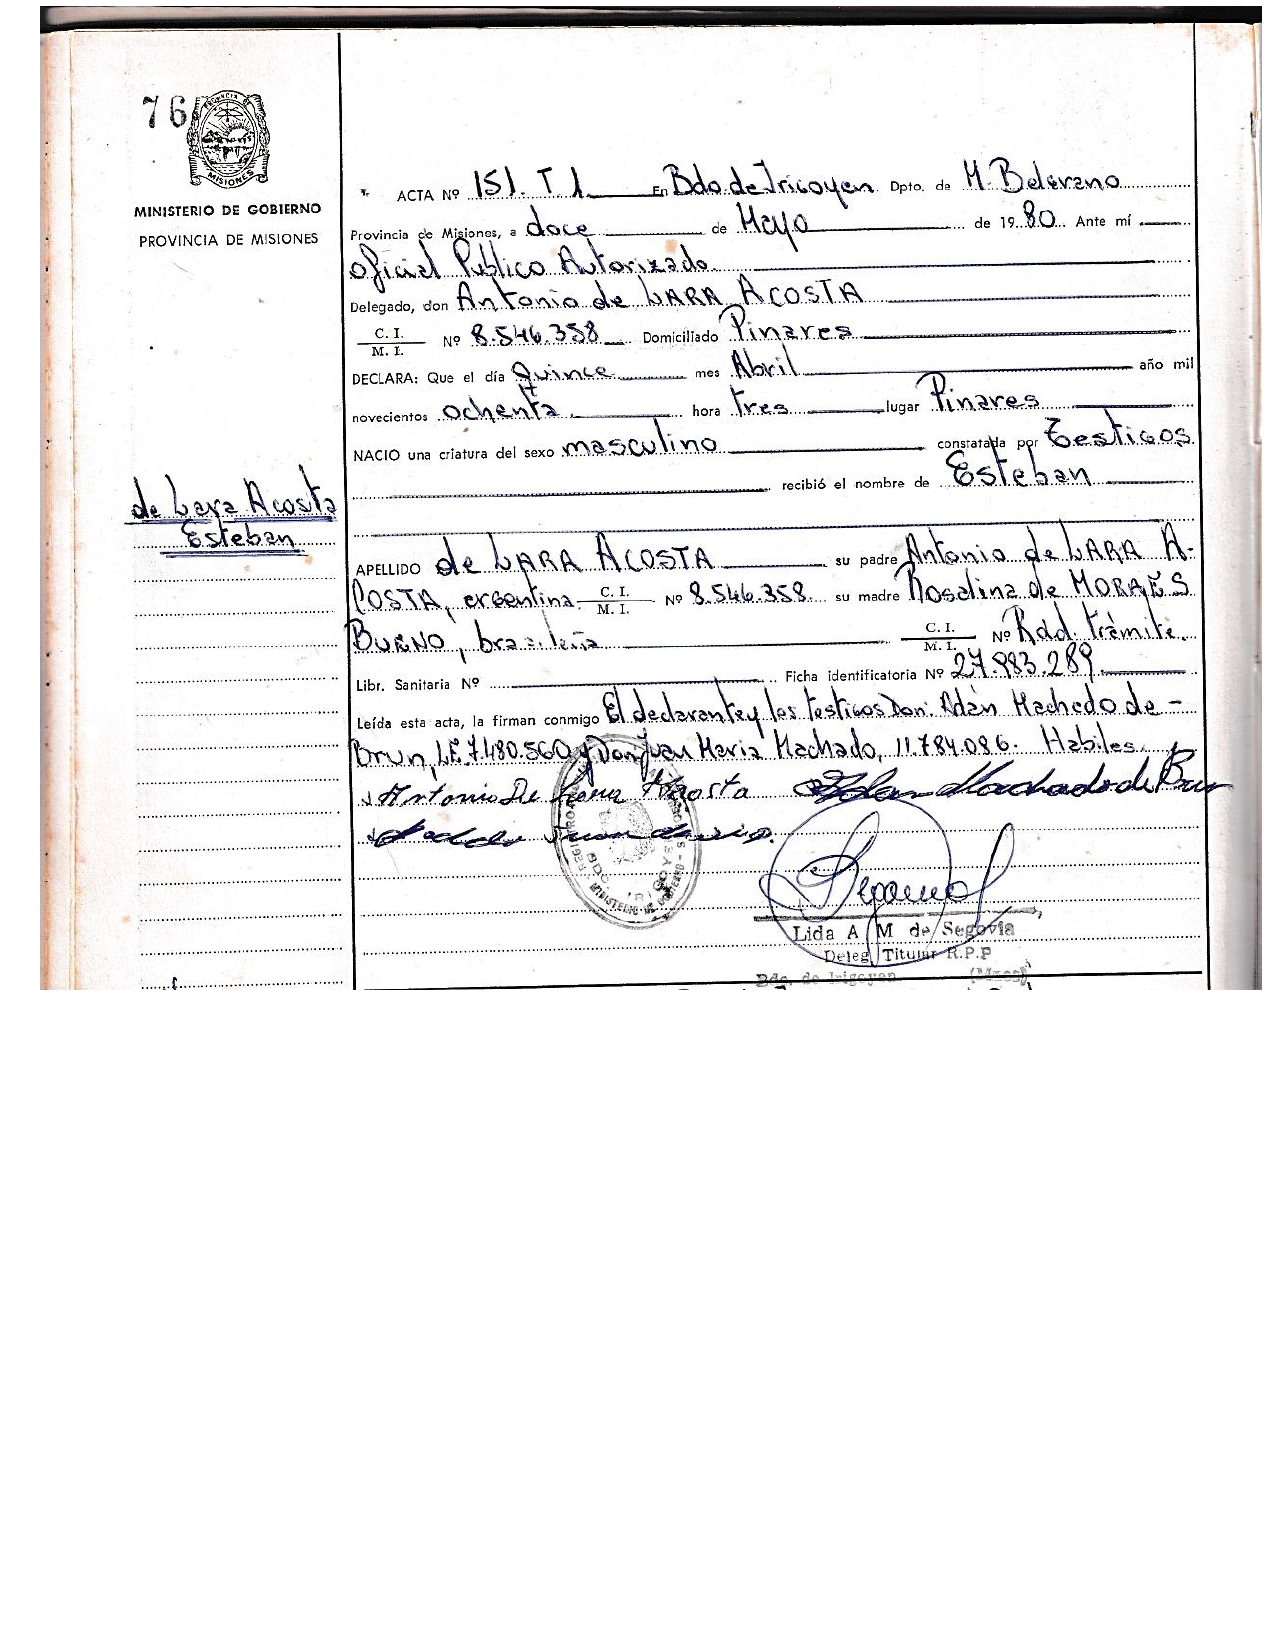 76
PROVINCIA DE
MISIONES
MINISTERIO DE GOBIERNO
PROVINCIA DE MISIONES
de Lara Acosta
Esteban
ACTA Nº 151. T I. En Bdo. de Irigoyen Dpto. de M. Belgrano
Provincia de Misiones, a doce de Mayo de 19 80 Ante mí
oficial Publico Autorizado
Delegado, don Antonio de LARA ACOSTA
C. I.
M. I. Nº 8.546.358 Domiciliado Pinares
DECLARA: Que el día Quince mes Abril año mil
novecientos ochenta hora tres lugar Pinares
NACIO una criatura del sexo masculino constatada por Testigos
recibió el nombre de Esteban
APELLIDO de LARA ACOSTA su padre Antonio de LARA A-
COSTA, argentina. C. I. M. I. Nº 8.546.358 su madre Rosalina de MORAES
BUENO, brasileña C. I. M. I. Nº Rdd. trámite.
Libr. Sanitaria Nº Ficha identificatoria Nº 27.983.289.
Leída esta acta, la firman conmigo El declarante y los testigos Don. Adán Machado de -
Brun, LE. 7.480.560 y Don Juan Maria Machado, 11.784.086. Habiles.
Antonio De Lara Acosta Adan Machado de Brun
Lida A M de Segovia
Deleg. Titular R.P.P
Bdo. de Irigoyen (Mnes)